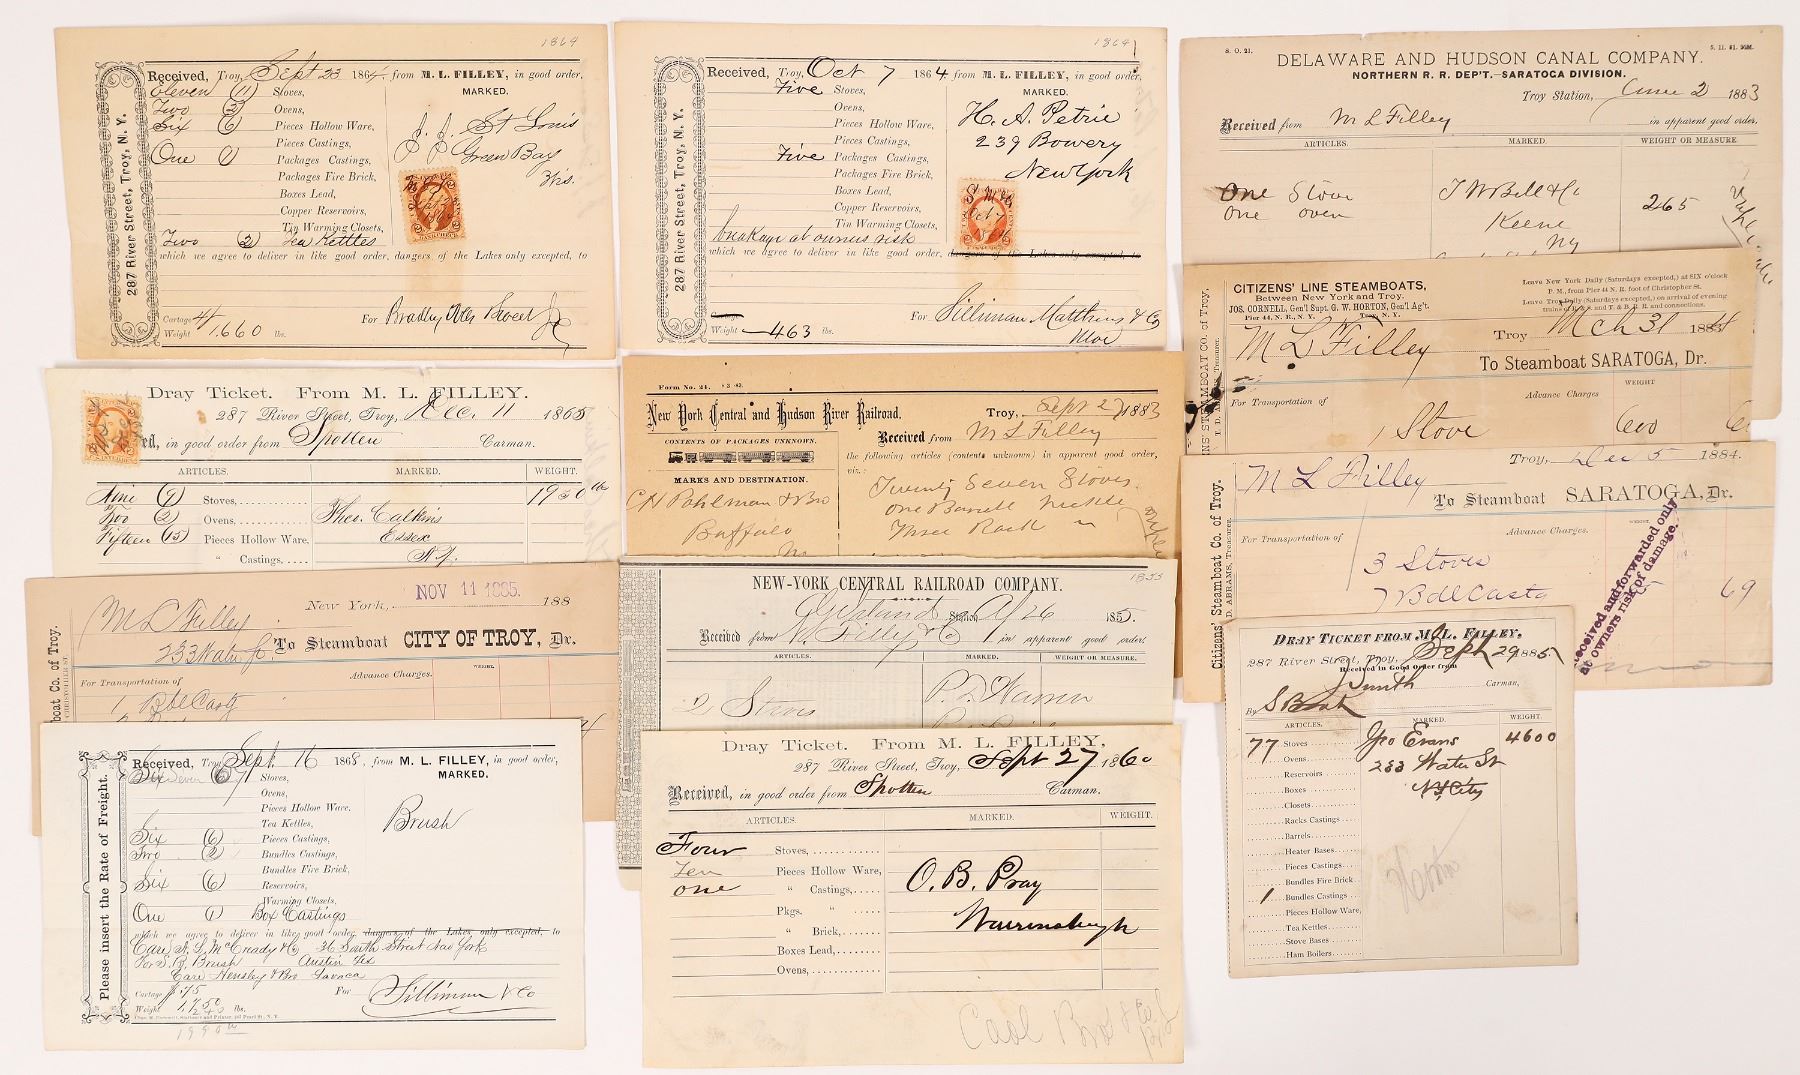 1864
Received, Troy, Sept 23 1864, from M. L. FILLEY, in good order,
MARKED.
287 River Street, Troy, N. Y.
Eleven (11) Stoves,
Two (2) Ovens,
Six (6) Pieces Hollow Ware,
Pieces Castings,
One (1) Packages Castings,
Packages Fire Brick,
Boxes Lead,
Copper Reservoirs,
Tin Warming Closets,
Two (2) Tea Kettles
J. J. St Louis
Green Bay
Wis.
which we agree to deliver in like good order, dangers of the Lakes only excepted, to
Cartage
Weight 1,660 lbs.
For Bradley
1864
Received, Troy, Oct 7 1864 from M. L. FILLEY, in good order,
MARKED.
287 River Street, Troy, N. Y.
Five Stoves,
Ovens,
Pieces Hollow Ware,
Pieces Castings,
Five Packages Castings,
Packages Fire Brick,
Boxes Lead,
Copper Reservoirs,
Tin Warming Closets,
H. A. Petrie
239 Bowery
New York
breakage at owners risk
which we agree to deliver in like good order, dangers of the Lakes only excepted, to
Cartage
Weight 463 lbs.
For Silliman Matthews & Co
S. O. 21. 5. 11. 81. 20M.
DELAWARE AND HUDSON CANAL COMPANY.
NORTHERN R. R. DEP'T.—SARATOGA DIVISION.
Troy Station, June 2 1883
Received from M L Filley in apparent good order,
ARTICLES. MARKED. WEIGHT OR MEASURE.
One Stove
One oven
J W Bell & Co
Keene
Ny
265
CITIZENS' LINE STEAMBOATS,
Between New York and Troy.
JOS. CORNELL, Gen'l Supt. G. W. HORTON, Gen'l Ag't.
Pier 44, N. R., N. Y. Troy, N. Y.
Leave New York Daily (Saturdays excepted,) at SIX o'clock
P. M., from Pier 44 N. R. foot of Christopher St.
Leave Troy Daily (Saturdays excepted,) on arrival of evening
M L Filley
Troy Mch 31 188
To Steamboat SARATOGA, Dr.
WEIGHT
For Transportation of Advance Charges
1 Stove 600
M L Filley
Troy, Dec 5 1884.
To Steamboat SARATOGA, Dr.
Citizens' Steamboat Co. of Troy.
WEIGHT.
For Transportation of Advance Charges.
3 Stoves
7 Bdl Casts 69
Received and forwarded only
at owners risk of damage.
Dray Ticket. From M. L. FILLEY.
287 River Street, Troy, Dec. 11 1865
in good order from Spotten Carman.
ARTICLES. MARKED. WEIGHT.
Nine (9) Stoves, 1950 lb
Two (2) Ovens,
Fifteen (15) Pieces Hollow Ware,
" Castings,
Theo. Calkins
Essex
N.Y.
Form No. 21.
New York Central and Hudson River Railroad.
CONTENTS OF PACKAGES UNKNOWN.
MARKS AND DESTINATION.
Troy, Sept 27 1883
Received from M L Filley
the following articles (contents unknown) in apparent good order,
viz.:
C H Pohlman & Bro
Buffalo
Twenty Seven Stoves
one Barrell
Three Rack
M L Filley
233 Water St
New York, NOV 11 1885. 188
To Steamboat CITY OF TROY, Dr.
WEIGHT.
For Transportation of Advance Charges.
1 Bdl Castg
NEW-YORK CENTRAL RAILROAD COMPANY.
1855
Station Ap 26 1855.
Received from Filley & Co in apparent good order.
ARTICLES. MARKED. WEIGHT OR MEASURE.
2 Stoves P. D. Warren
DRAY TICKET FROM M. L. FILLEY,
287 River Street, Troy, Sept 29 1885.
Received in Good Order from
Smith Carman,
By
ARTICLES. MARKED. WEIGHT.
77 Stoves Geo Evans 4600
Ovens 233 Water St
Reservoirs NY City
Boxes
Closets
Racks Castings
Barrels
Heater Bases
Pieces Castings
Bundles Fire Brick
1 Bundles Castings
Pieces Hollow Ware,
Tea Kettles
Stove Bases
Ham Boilers
Please insert the Rate of Freight.
Received, Troy Sept. 16 1868, from M. L. FILLEY, in good order,
MARKED.
Stoves,
Ovens,
Pieces Hollow Ware.
Tea Kettles,
Six (6) Pieces Castings,
Two (2) Bundles Castings,
Bundles Fire Brick,
Six (6) Reservoirs,
Warming Closets,
One (1) Box Castings
Brush
which we agree to deliver in like good order, dangers of the Lakes only excepted, to
Care N. L. McCready & Co 36 South Street New York
For S. B. Brush Austin Tex
Care Hensley & Bro Lavaca
Cartage .75
Weight 1,750 lbs.
240
1990
For Silliman & Co
Dray Ticket. From M. L. FILLEY,
287 River Street, Troy, Sept 27 1860
Received, in good order from Spotten Carman.
ARTICLES. MARKED. WEIGHT.
Four Stoves,
Ten Pieces Hollow Ware,
One " Castings,
Pkgs. "
" Brick,
Boxes Lead,
Ovens,
O. B. Pray
Warrensburgh